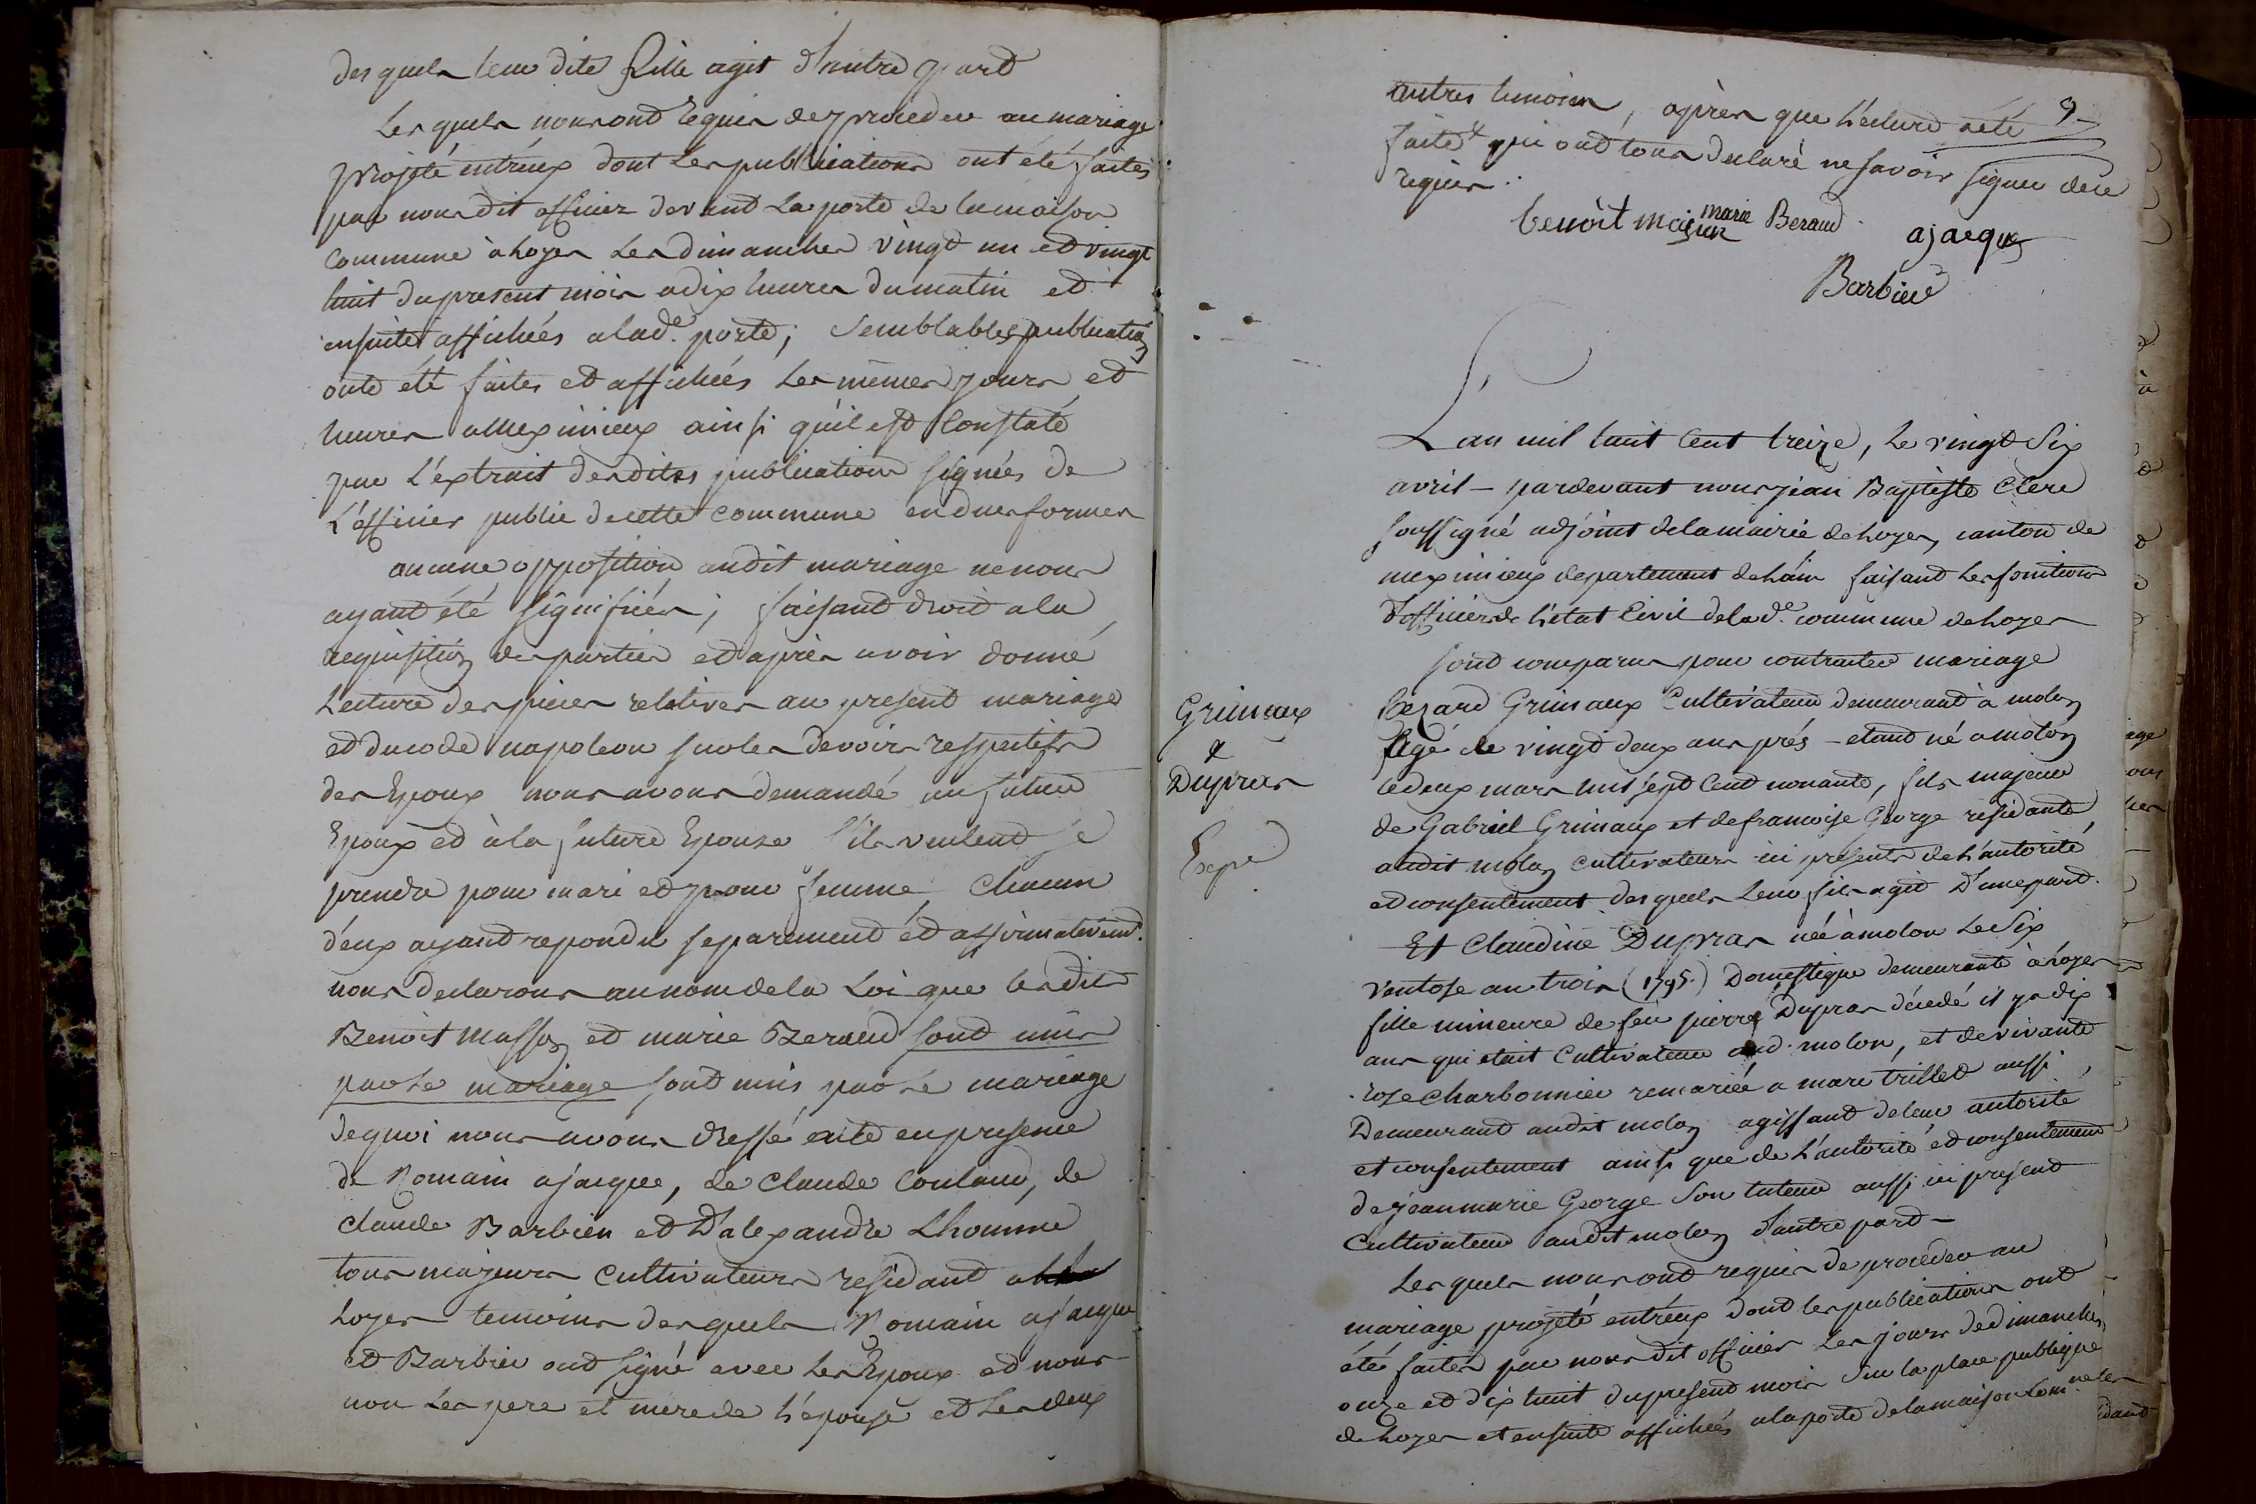 des quels leur dite fille agit d'autre part
Les quels nous ont requis de proceder au mariage
projeté entréux dont les publications ont été faites
par nous dit officier devant la porte de la maison
commune à loyes les dimanches vingt un et vingt
huit du present mois a dix heures du matin et
ensuites affichées a lad.e porte; semblables publication
ont été faites et affichées les mêmes jours et
heures a Meximieux ainsi qu'il est constaté
par l'éxtrait des dites publications signées de
L'officier public de cette commune en dues formes
aucune opposition audit mariage ne nous
ayant été signifiées; faisant droit a la
requisition des parties et après avoir donné
Lecture des pieces relatives au present mariage
et du code napoleon sur les devoirs respectifs
des Epoux nous avons demandé au futur
Epoux et à la future Epouse s'ils veulent se
prendre pour mari et pour femme, chacun
d'eux ayant repondu separement et affirmativemt.
nous declarons au nom de la Loi que lesdits
Benoît Masson et marie Beraud sont unis
par le mariage sont unis par le mariage
de quoi nous avons dressé acte en presence
de Romain ajacque, de claude Coulaud, de
claude Barbier et D'alexandre Lhomme
tous majeurs cultivateurs residant a
Loyes temoins des quels Romain ajacque
et Barbier ont signé avec les Epoux et nous
non les pere et mere de l'épouse et les deux
autres temoins, après que lécture a été 9
faite & qui ont tous declaré ne savoir signer de ce
requis.
benoit masson marie Beraud ajacque
Barbier
L'an mil huit cent treize, le vingt six
avril - pardevant nous jean Baptiste Clerc
soussigné adjoint de la mairie de loyes, canton de
meximieux departement de l'ain faisant les fonctions
d'officier de l'état civil de lad.e commune de loyes
sont comparus pour contracter mariage
Grimaux
&
Dupras
Exepé
Bezard Grimaux Cultivateur demeurant à molon
agé de vingt deux ans près - etant né a molon
le deux mars mil sept cent nonante, fils majeur
de Gabriel Grimaux et de francoise George residants,
audit molon cultivateurs ici presents de l'autorité
et consentement des quels leur fils agit D'une part.
Et Claudine Dupras née à molon le six
Vantose an trois (1795.) Domestique demeurante à loyes
fille mineure de feu pierre Dupras décedé il y a dix
ans qui etait cultivateur aud. molon, et de vivante
rose Charbonnier remariée a marc trillet aussi,
Demeurant audit molon agissant de leur autorité
et consentement ainsi que de l'autorité et consentement
de jean marie George son tuteur aussi ici present
Cultivateur audit molon d'autre part -
Les quels nous ont requis de proceder au
mariage projeté entréux dont les publications ont
été faites par nous dit officier les jours de dimanches
onze et dix huit du present mois sur la place publique
de loyes et ensuite affichées a la porte de la maison com.ne